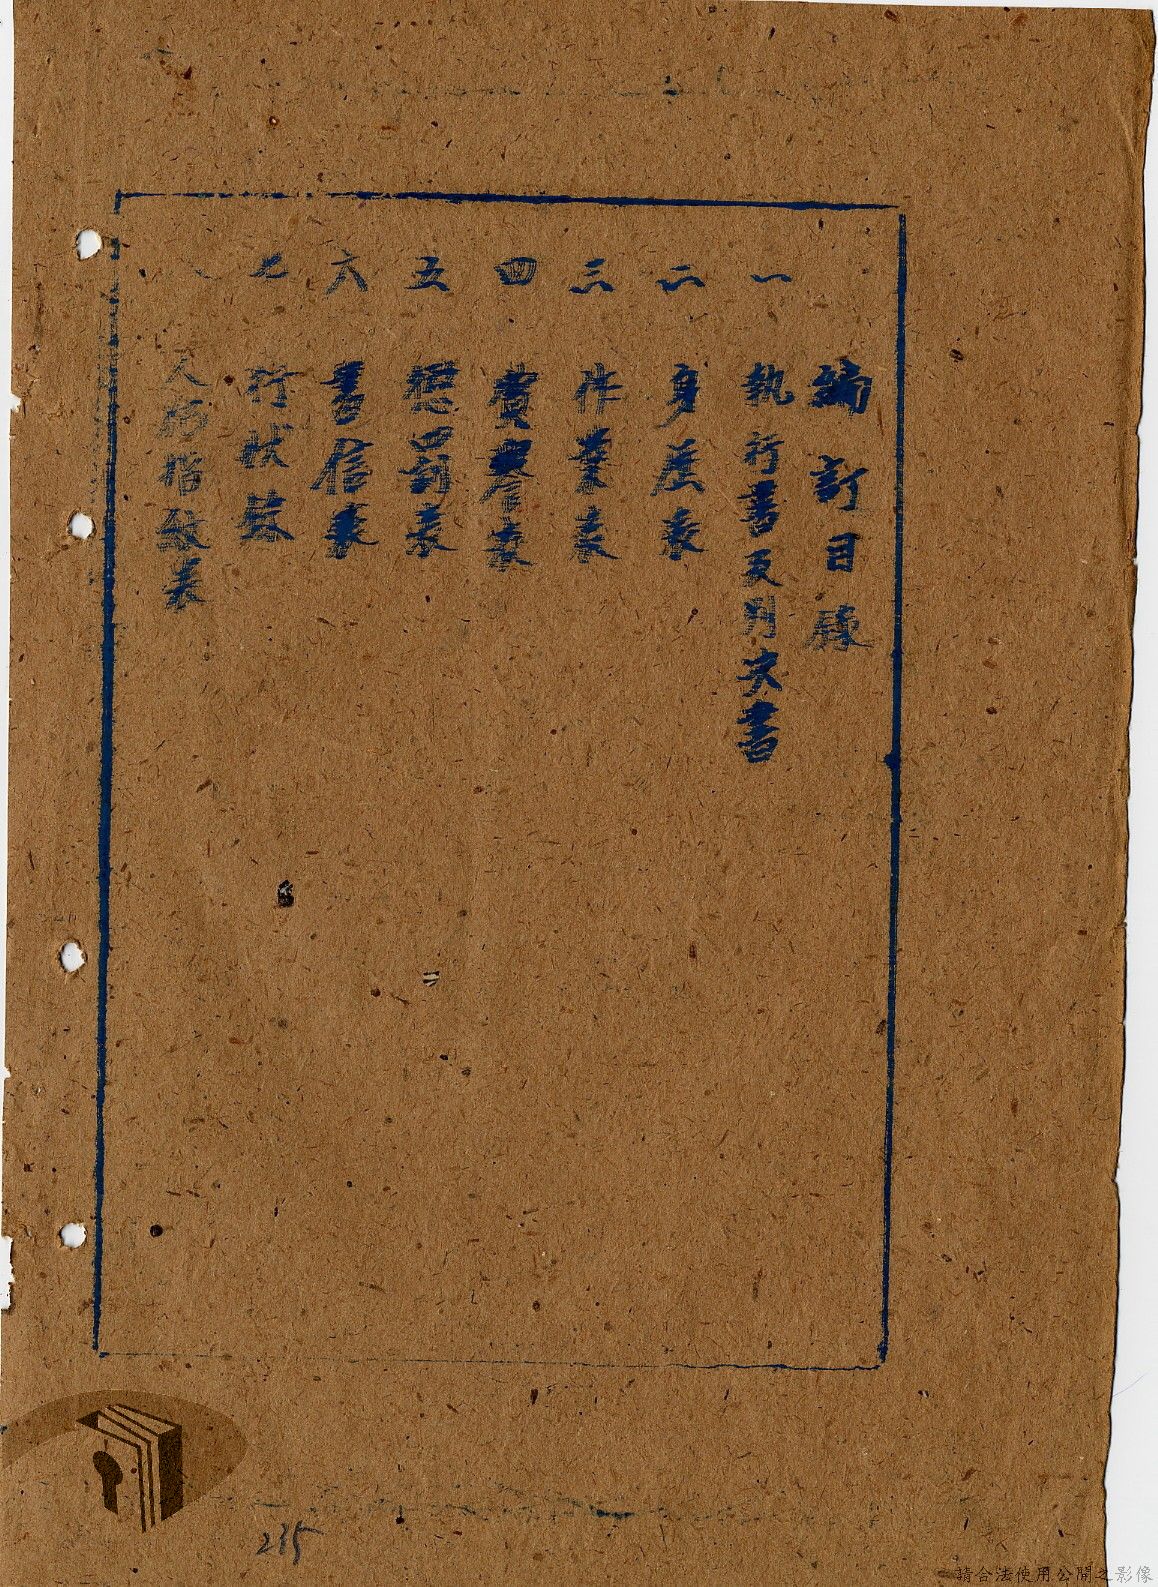 編訂目錄
一 執行書及判決書
二 身歷表
三 作業表
四 賞譽表
五 懲罰表
六 書信表
七 行狀錄
人相指紋表
235
請合法使用公開之影像